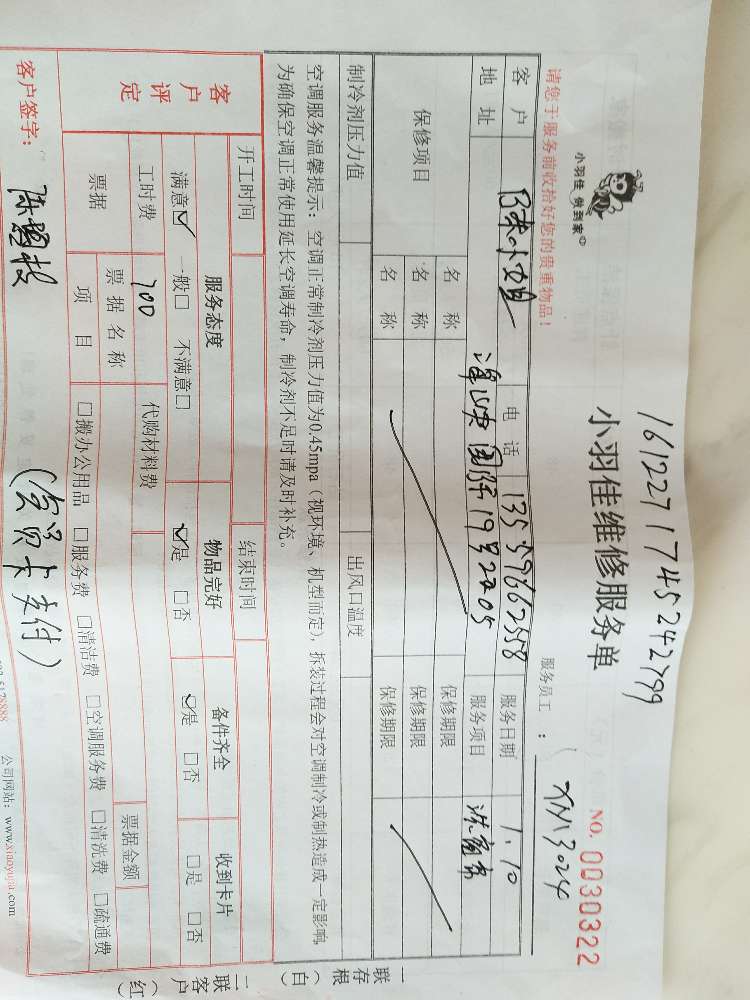 1612271745242799
小羽佳维修服务单
小羽佳 做到家
NO. 0030322
请您于服务前收拾好您的贵重物品！
服务员工： XN13024
客户 电话 13559662558 服务日期 1.10
地址 国际19#2205 服务项目 洗窗帘
保修项目 名称 保修期限
名称 保修期限
名称 保修期限
制冷剂压力值 出风口温度
空调服务温馨提示：空调正常制冷剂压力值为0.45mpa（视环境、机型而定），拆装过程会对空调制冷或制热造成一定影响，
为确保空调正常使用延长空调寿命，制冷剂不足时请及时补充。
开工时间 结束时间
客户评定 服务态度 物品完好 备件齐全 收到卡片
满意☑ 一般□ 不满意□ ☑是 □否 ☑是 □否 □是 □否
工时费 70D 代购材料费
票据 票据名称 票据金额
项目 □搬办公用品 □服务费 □清洁费 □空调服务费 □清洗费 □疏通费
客户签字： （会员卡支付）
5178888 公司网站：www.xiaoyujia.com
一联存根（白）
二联客户（红）